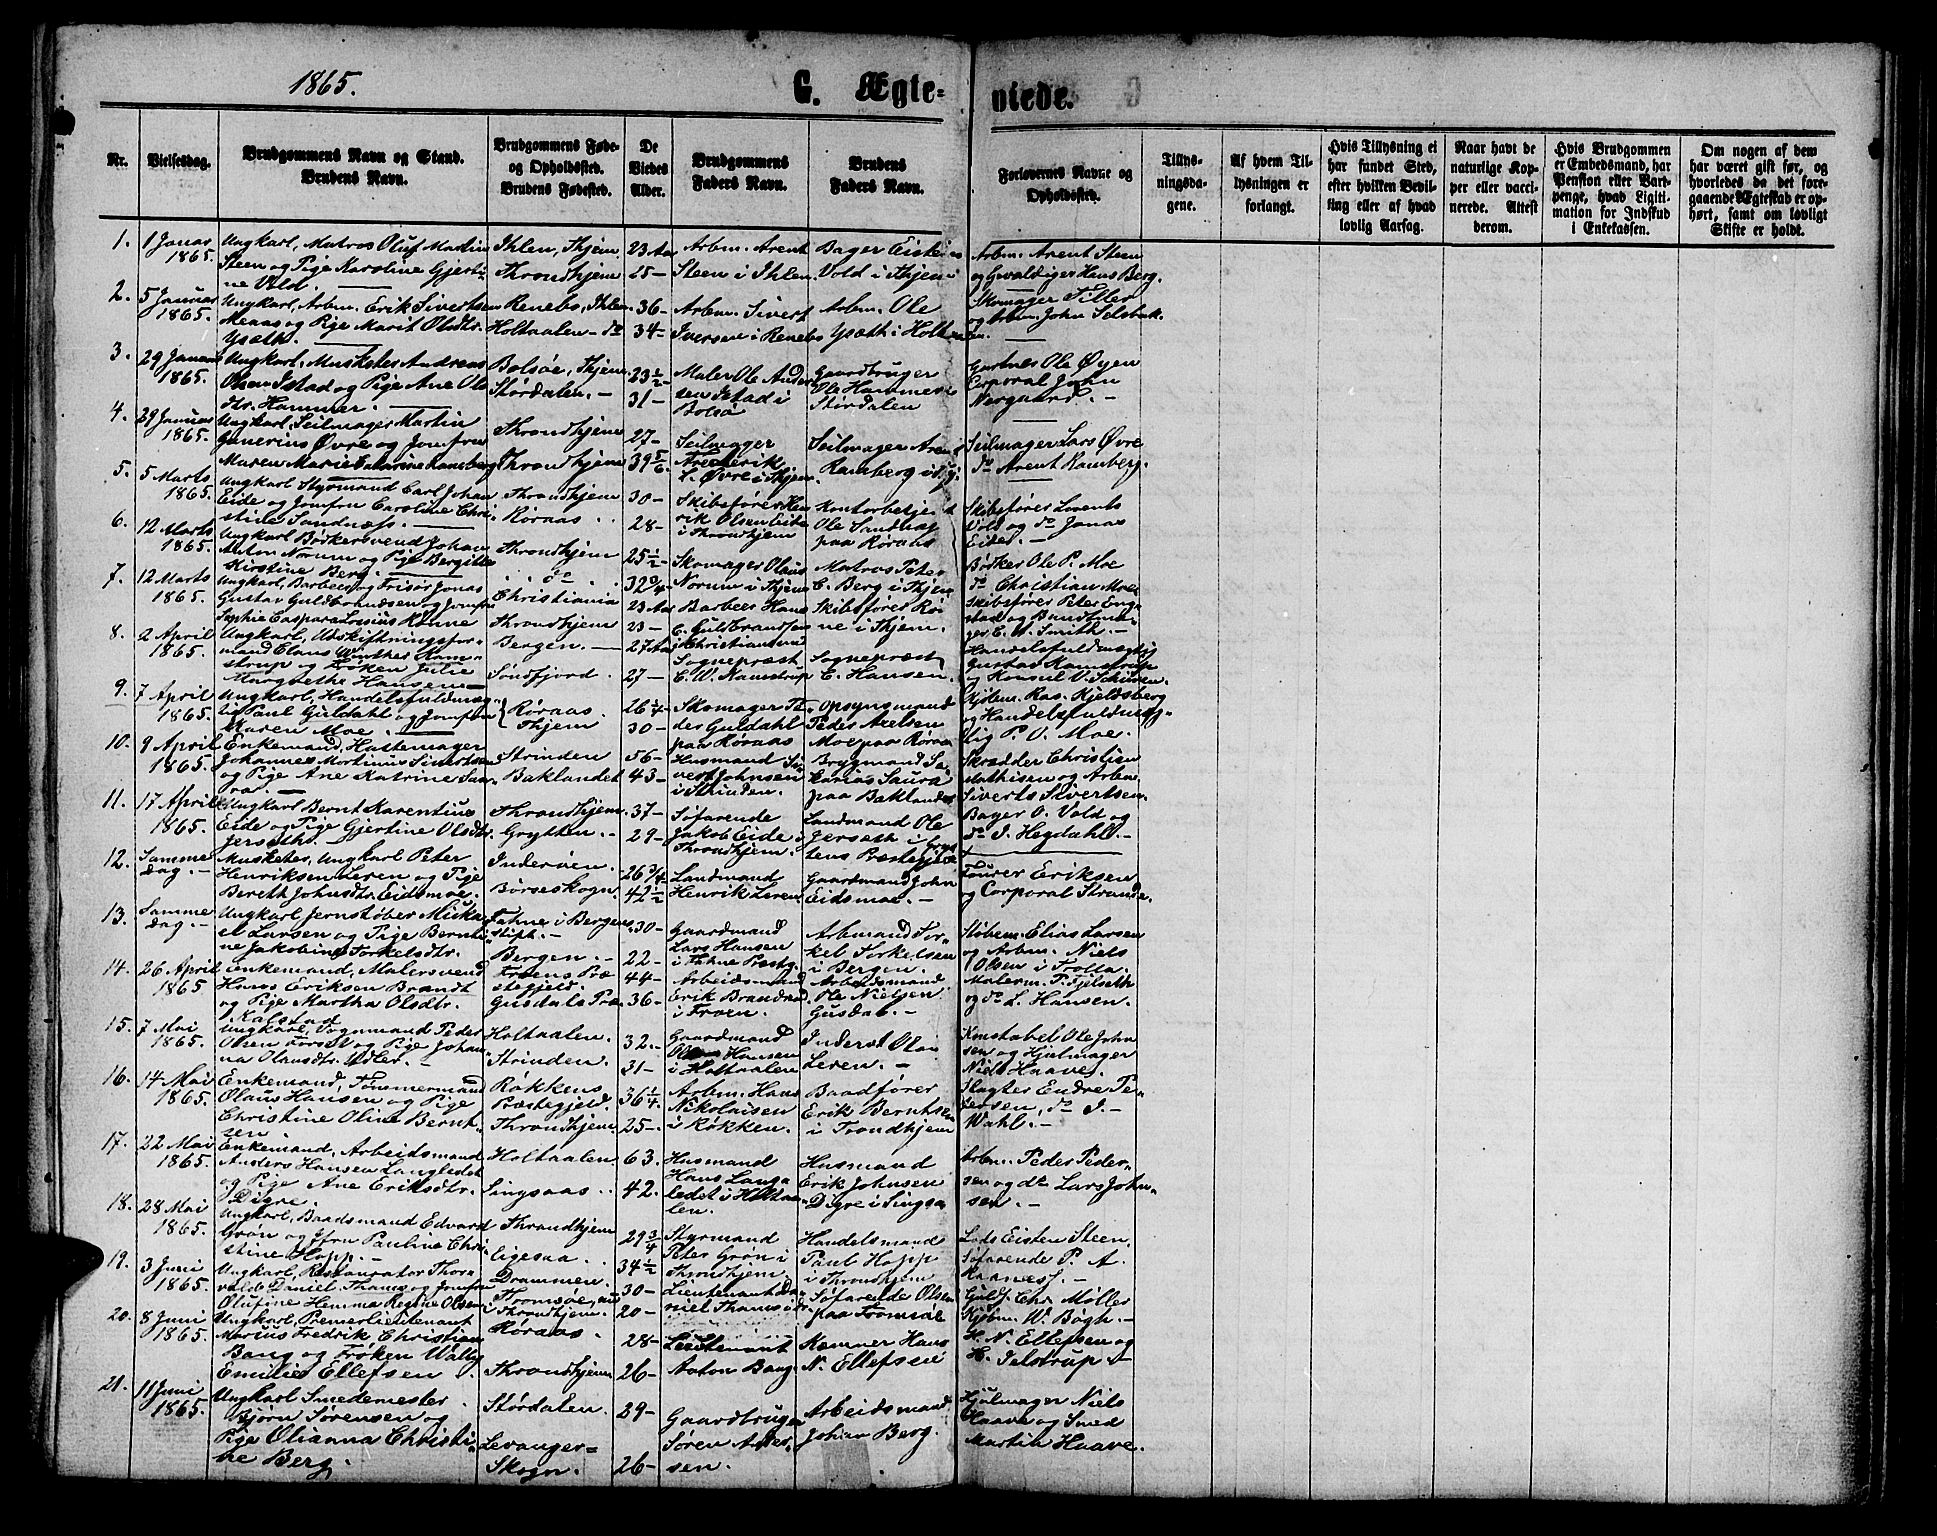 1865.
G. Ægte-
viede.
Nr.
Vielsesdag.
Brudgommens Navn og Stand.
Brudens Navn.
Brudgommens Føde-
og Opholdssted.
Brudens Fødested.
De
Viedes
Alder.
Brudgommens
Faders Navn.
Brudens
Faders Navn.
Forlovernes Navne og
Opholdssted.
Tillys-
ningsda-
gene.
Af hvem Til-
lysningen er
forlangt.
Hvis Tillysning ei
har fundet Sted,
efter hvilken Bevil-
ling eller af hvad
lovlig Aarsag.
Naar havt de
naturlige Kop-
per eller vacci-
nerede. Attest
derom.
Hvis Brudgommen
er Embedsmand, har
Pension eller Vart-
penge, hvad Ligiti-
mation for Indskud
i Enkekassen.
Om nogen af dem
har været gift før, og
hvorledes da det fore-
gaaende Ægteskab er op-
hørt, samt om lovligt
Skifte er holdt.
1.
1 Januar
1865.
Ungkarl, Matros Oluf Martin
Steen og Pige Karoline Gjerti-
ne Vold.
Ihlen, Thjem
Throndhjem
23 Aar
25 -
Arbm. Arent
Steen i Ihlen.
Bager Eisten
Vold i Thjem
Arbm. Arent Steen
og Gevaldiger Hans Berg.
2.
5 Januar
1865.
Ungkarl, Arbm. Erik Sivertsen
Meaas og Pige Marit Olsdtr.
Ysæth.
Renebo, Ihlen
Holtaalen - do
36 -
34 -
Arbm. Sivert
Iversen i Renebo
Arbm. Ole
Ysæth i Holtaalen.
Skomager Tiller
og Arbm. John Selsbak.
3.
29 Januar
1865.
Ungkarl, Musketer Andreas
Olsen Istad og Pige Ane Ols
dtr. Hammer.
Bolsøe, Thjem
Størdalen. -
23 1/2
31 -
Maler Ole Ander
sen Istad i
Bolsø
Gaardbruger
Ole Hammer
Størdalen
Gartner Ole Øyen
Corporal John
Nergaard. -
4.
29 Januar
1865.
Ungkarl, Seilmager Martin
Gunerius Øvre og Jomfru
Maren Marie Catarine Ramberg
Throndhjem
Throndhjem
27 -
39 5/6
Seilmager
Frederik
L. Øvre i Thjem
Seilmager Arent
Ramberg i Thj.
Seilmager Lars Øvre
do Arent Ramberg.
5.
5 Marts
1865.
Ungkarl Styrmand Carl Johan
Eide og Jomfru Caroline Chri-
stine Sandnæs.
Throndhjem
Røraas
30 -
28 -
Skibsfører Hen
rik Olsen Eide
i Throndhjem
Kontorbetjent
Ole Sandnæs
paa Røraas
Skibsfører Lorents
Vold og do Jonas
Eide. -
6.
12 Marts
1865.
Ungkarl Bødkersvend Johan
Anton Norum og Pige Bergitte
Kirstine Berg.
Throndhjem
do
25 1/2
Skomager Olaus
Norum i Thjem
Matros Peter
C. Berg i Thjem
Bødker Ole P. Moe
do Christian Moe
7.
12 Marts
1865.
Ungkarl, Barbeer og Frisør Jonas
Gustav Guldbrandsen og Jomfru
Sophie Caspara Lovise Rønne
Christiania
Throndhjem
23 Aar
23 -
Barbeer Hans
C. Guldbrandsen
i Christiansund
Skibsfører Røn
ne i Thjem.
Skibsfører Peter Eng-
stad og Bundtma-
ger C. W. Smith. -
8.
2 April
1865.
Ungkarl, Udskiftningsfor-
mand Claus Winther Kam-
strup og Frøken Julie
Margrethe Hansen
Bergen. -
Søndfjord.
27 Aar
27 -
Sognepræst
C. W. Kamstrup
Sognepræst
C. Hansen.
Handelsfuldmægtig
Gustav Kamstrup
og Konsul O. Schiven.
9.
7 April
1865.
Ungkarl, Handelsfuldmæg-
tig Paul Guldahl og Jomfru
Karen Moe.
Røraas.
Thjem
26 1/4
30 -
Skomager Pe-
der Guldahl
paa Røraas
Opsynsmand
Peder Axelsen
Moe paa Røraas
Kjøbm. Ras. Kjeldsberg
og Handelsfuldmæg-
tig P. O. Moe.
10.
9 April
1865.
Enkemand, Hattemager
Johannes Mortinus Sivertsen
og Pige Ane Katrine Sau-
ra.
Strinden
Baklandet
56 -
43 -
Husmand Si-
vert Johnsen
i Strinden.
Brygmand Za-
karias Saura
paa Baklandet
Skrædder Christian
Mathisen og Arbm.
Siverts Sivertsen.
11.
17 April
1865.
Ungkarl Bernt Karentius
Eide og Pige Gjertine Olsdtr.
Jerseth.
Throndhjem
Grytten. -
37 -
29 -
Søfarende
Jakob Eide i
Throndhjem.
Landmand Ole
Jerseth i Gryt
tens Præstegjeld
Bager O. Vold og
do I. Hegdahl. -
12.
Samme
Dag. -
Musketer, Ungkarl Peter
Henriksen Leren og Pige
Bereth Johnsdtr. Eidsmoe.
Inderøen.
Børseskogn.
26 3/4
42 1/2
Landmand
Henrik Leren
Gaardmand John
Eidsmoe. -
Fourer Eriksen
og Corporal Strande.
13.
Samme
Dag. -
Ungkarl Jernstøber Mikka
el Larsen og Pige Bernti-
ne Jakobine Torkelsdtr.
Fahne i Bergens
Stift. -
Bergen. -
30 -
22 -
Gaardmand
Lars Hansen
i Fahne Præstg.
Arbmand Tor-
kel Torkelsen
i Bergen.
Støbem. Elias Larsen
og Arbm. Niels
Olsen i Trolla.
14.
26 April
1865
Enkemand, Malersvend
Hans Eriksen Brandt
og Pige Martha Olsdtr.
Kalstad
Froens Præ
stegjeld.
Gusdals Præ
44 -
36 -
Arbeidsmand
Erik Brandt
i Froen.
Arbeidsmand
Ole Nielsen
Gusdal. -
Malerm. P. Fjelseth
og do L. Hansen.
15.
7 Mai
1865.
Ungkarl, Vognmand Peder
Olsen Forset og Pige Johan-
na Olausdtr. Udler. -
Holtaalen.
Strinden.
32. -
31 -
Gaardmand
Hansen
i Holtaalen
Inderst Ola
Leren. -
Konstabel Ole John
sen og Hjulmager
Niels Haave.
16.
14 Mai
1865.
Enkemand, Tømmermand
Olaus Hansen og Pige
Christine Oline Bernt-
sen
Røkkens
Præstegjeld.
Throndhjem
36 1/4
25 -
Arbm. Hans
Nikolaisen
i Røkken.
Baadfører
Erik Berntsen
i Trondhjem
Slagter Endre Pe-
dersen, do I. -
Wahl. -
17.
22 Mai
1865.
Enkemand, Arbeidsmand
Anders Hansen Langledet
og Pige Ane Eriksdtr.
Digre.
Holtaalen.
Singsaas
63.
42.
Husmand
Hans Lang-
ledet i Holtaa-
len.
Husmand
Erik Johnsen
Digre i Singsaas
Arbm. Peder Peder-
sen og do Lars John-
sen. -
18.
28 Mai
1865.
Ungkarl, Baadsmand Edvard
Grøn og Jfru Pauline Chri-
stine Hopp.
Throndhjem
Eigesaa.
29 3/4
34 1/2
Styrmand
Peter Grøn i
Throndhjem
Handelsmand
Paul Hopp
i Throndhjem
Lods Eisten Steen.
Søfarende P. A.
Raanes. -
19.
3 Juni
1865.
Ungkarl, Restaurator Thor-
vald Daniel Thams og Jomfru
Olufine Hemma Regine Olsen
Drammen.
Tromsøe, nu
i Throndhjem.
30 -
20 -
Lieutenant Da-
niel Thams i dr.
Søfarende Olsen
paa Tromsøe
Guldf. Chr. Møller
Kjøbm. W. Bøgh. -
20.
8 Juni
1865.
Ungkarl, Premierlieutenant
Marius Fredrik Christian
Bang og Frøken Wally
Emilie Ellefsen
Røraas
Throndhjem
28 -
26 -
Lieutenant
Anton Bang.
Kæmner Hans
N. Ellefsen
H. N. Ellefsen og
H. Jelstrup. -
21.
11 Juni
1865.
Ungkarl Smedemester
Bjørn Sørensen og
Pige Olianna Christi-
ne Berg.
Størdalen.
Levanger-
Skogn.
29 -
26 -
Gaardbruger
Søren Ander-
sen.
Arbeidsmand
Johan Berg.
Hjulmager Niels
Haave og Smed
Martin Haave.